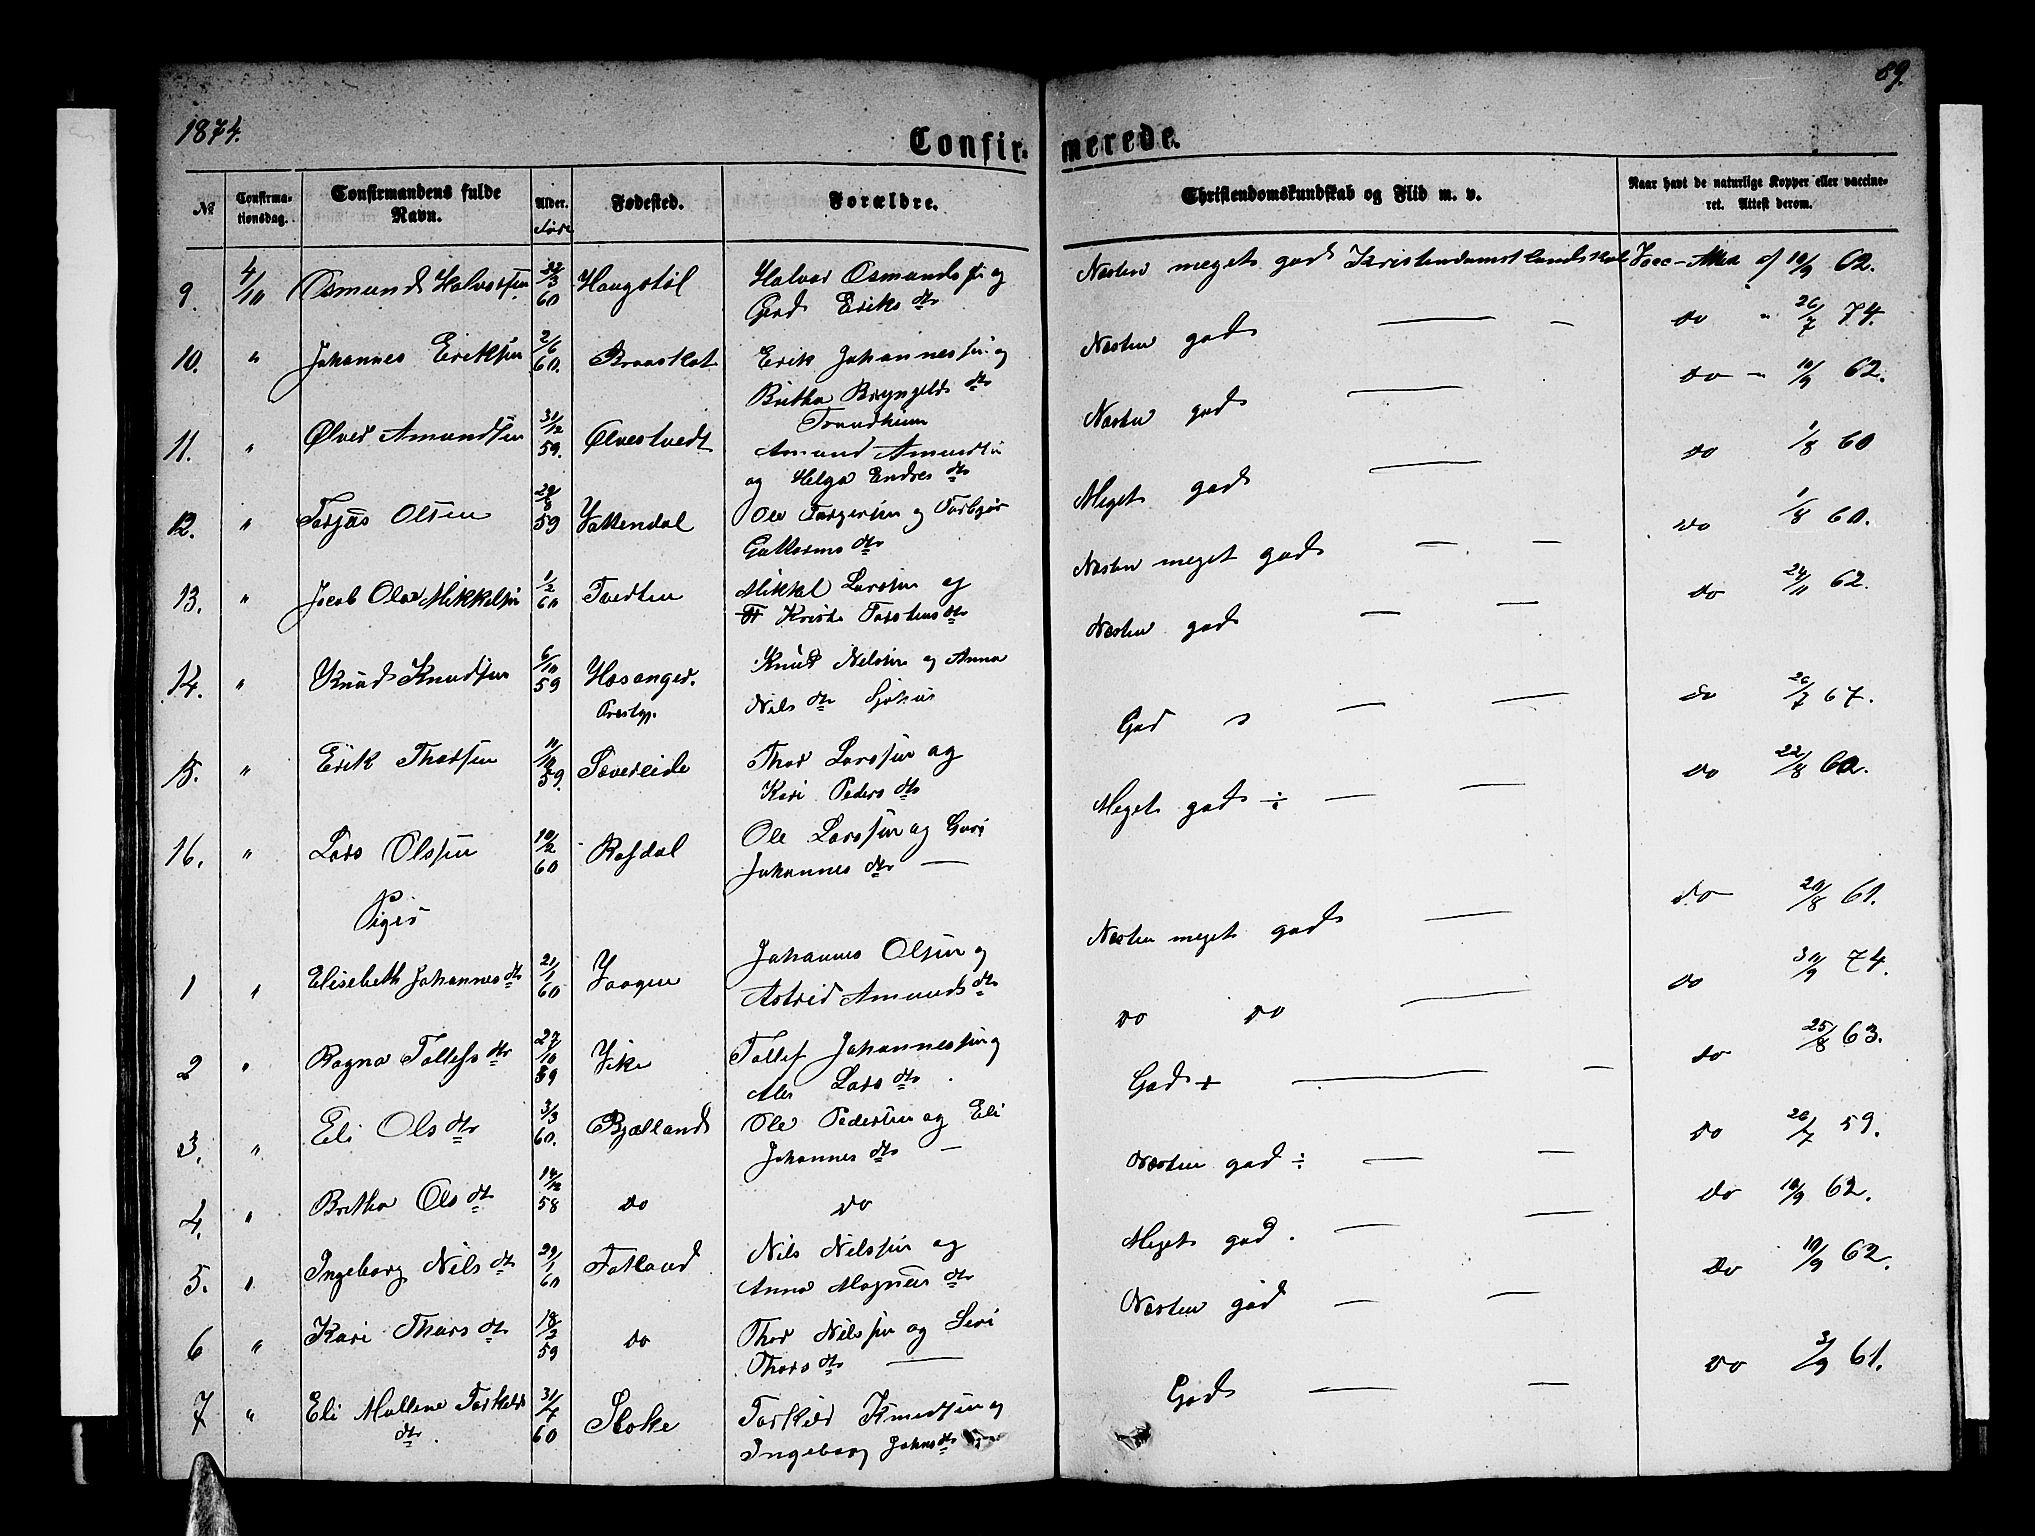 89.
1874.
Confirmerede.
№ Confirmationsdag. Confirmandens fulde Navn. Alder. Føde Fødested. Forældre. Christendomskundskab og Flid m. v. Naar havt de naturlige Kopper eller vaccineret. Attest derom.
9. 4/10 Osmund Halvorsen /3 60 Haugstøl Halvor Osmunds og Eriks dtr Næsten meget god Kristendomskundskab Vacc-Att. af 10/9 62.
10. " Johannes Eriksen 2/6 60. Braaskot Erik Johannessen og Britha Bryngels dtr Næsten god — — do " 26/7 74.
11. " Ølver Amundsen 31/12 59. Ølvestvedt Trondheim Amund Amundsen og Helga Endres dtr Næsten god — do - 10/9 62.
12. " Torjus Olsen 59 Vattendal Ole Torgersen og Torbjør Guttorms dtr Meget god — do 1/8 60
13. " Jacob Olai Mikkelsen 1/2 60 Tvedten Mikkel Larssen og Kristi Torstens dtr Næsten meget god — — do 1/8 60.
14. " Knud Knudsen 6/10 59 Hosanger. Præstgj. Knud Nilssen og Anna Nils dtr Sjohus Næsten god — — do 24/11 62.
15. " Erik Thorsen 11/10 59. Sævereide Thor Larssen og Kari Peders dtr God — — do 26/7 67.
16. " Lars Olssen 10/2 60 Røfdal Ole Larssen og Guri Johannes dtr — Meget god ÷ — — do 22/8 60.
Piger
1 " Elisebeth Johannes dtr 21/1 60 Vaagen Johannes Olsen og Astrid Amunds dtr Næsten meget god — do 20/8 61.
2 " Ragna Tollefs dtr 27/10 59 Vike Tollef Johannessen og Lars dtr. do do — do 30/9 74.
3. " Eli Ols dtr 3/3 60. Bjelland Ole Pedersen og Eli Johannes dtr — God + — — do 25/8 63.
4. " Britha Ols dtr 14/12 58 do do Næsten god ÷ — — do 26/7 59.
5. " Ingeborg Nils dtr 29/1 60 Fatland Nils Nilssen og Anna Magnus dtr Meget god. — — do 10/9 62.
6 " Kari Thors dtr 18/2 59 do Thor Nilssen og Siri Thors dtr — Næsten god — — do 10/9 62.
7 " Eli Mallene Torkilds dtr. 31/7 60 Stoke Torkild Knudsen og Ingeborg Johns dtr God — — do 3/9 61.